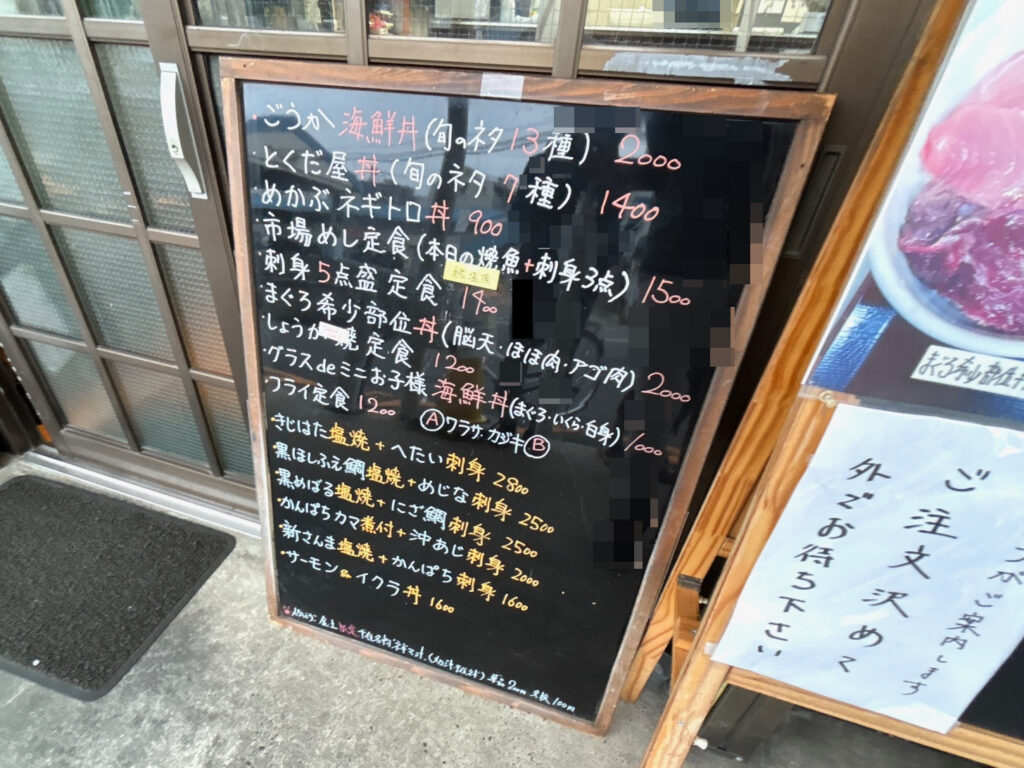 ・ごうか海鮮丼(旬のネタ13種) 2000
・とくだ屋丼(旬のネタ7種) 1400
・めかぶネギトロ丼 900
・市場めし定食(本日の焼魚+刺身3点) 1500
・刺身5点盛定食 1400
・まぐろ希少部位丼(脳天・ほほ肉・アゴ肉) 2000
・しょうが焼定食 1200
・グラスdeミニお子様海鮮丼(まぐろ・いくら・白身) 1000
・フライ定食 1200 Ⓐワラサ・カジキⒷ
・きじはた塩焼+へだい刺身 2800
・黒ほしふえ鯛塩焼+めじな刺身 2500
・黒めばる塩焼+にざ鯛刺身 2500
・かんぱちカマ煮付+沖あじ刺身 2000
・新さんま塩焼+かんぱち刺身 1600
・サーモン&イクラ丼 1600
まぐろ希少部位丼
ご案内します
ご注文決めて
外でお待ち下さい